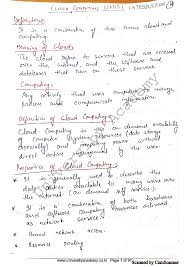 CLOUD COMPUTING (UNIT-1) INTRODUCTION
Definition:
It is a combination of two terms cloud and
computing.
Meaning of Cloud:
The cloud refers to servers that are accessed
over the internet, and the software and
databases that run on these servers.
Computing:
Any activity that uses computers to manage,
and communicate information.
Definition of Cloud Computing:
Cloud Computing is the on demand availability
of computer system resources (data storage
especially) and computing power
direct active management by the user.
Properties of Cloud Computing:
It is generally used to describe the
data centers available to many users over
the internet (on demand self service)
It is a combination of both hardware
and software computing resources delivered
as network services.
Broad network access.
Resource pooling
www.universityacademy.co.in
Page 1 of
Scanned by CamScanner